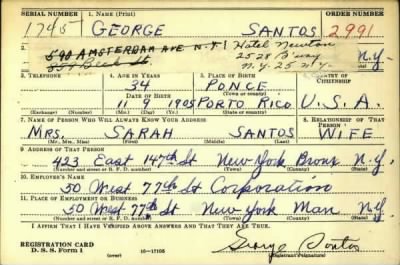 SERIAL NUMBER 1. NAME (Print) ORDER NUMBER
GEORGE SANTOS 2991
590 AMSTERDAM AVE N.Y. Hotel Newton
2528 B'way N.Y.
N.Y. 25 N.Y.
3. TELEPHONE 4. AGE IN YEARS 5. PLACE OF BIRTH 6. COUNTRY OF CITIZENSHIP
34 PONCE
DATE OF BIRTH (Town) (County)
11 9 1905 PORTO RICO U.S.A.
(Exchange) (Number) (Mo.) (Day) (Yr.) (State) (Country)
7. NAME OF PERSON WHO WILL ALWAYS KNOW YOUR ADDRESS 8. RELATIONSHIP OF THAT PERSON
MRS. SARAH SANTOS WIFE
(Mr., Mrs., Miss) (First) (Middle) (Last)
9. ADDRESS OF THAT PERSON
423 East 147th St New York Bronx N.Y.
(Number and street or R. F. D. number) (Town) (County) (State)
10. EMPLOYER'S NAME
50 West 77th St Corporation
11. PLACE OF EMPLOYMENT OR BUSINESS
50 West 77th St New York Man N.Y.
(Number and street or R. F. D. number) (Town) (County) (State)
I AFFIRM THAT I HAVE VERIFIED ABOVE ANSWERS AND THAT THEY ARE TRUE.
REGISTRATION CARD
D. S. S. Form 1 16-17105 George Santos
(Registrant's signature)